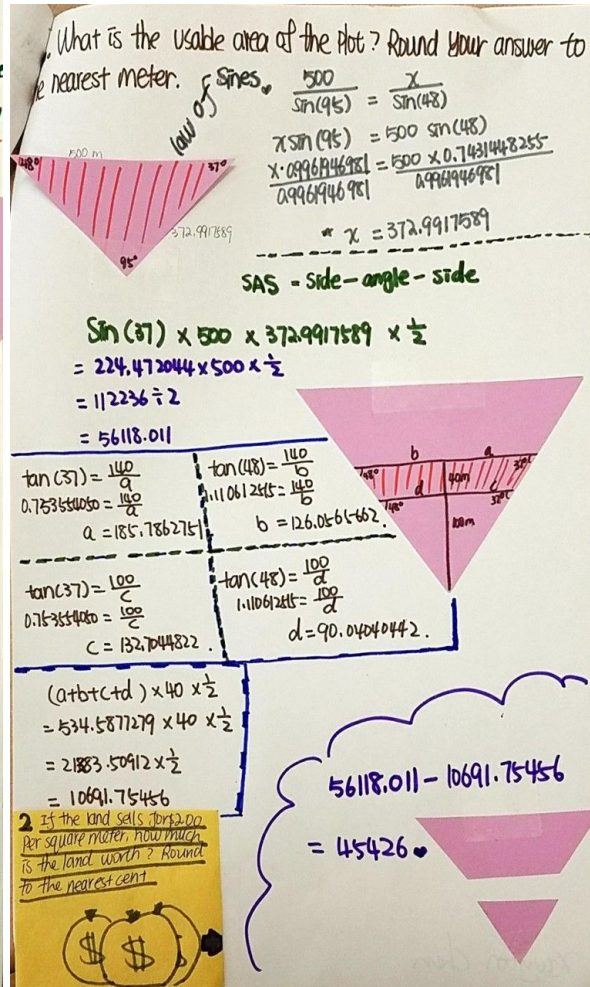 What is the usable area of the Plot? Round your answer to
nearest meter.
law of Sines.
500/sin(95) = x/sin(48)
x sin(95) = 500 sin(48)
x·0.9961946981/0.9961946981 = 500 x 0.7431448255/0.9961946981
* x = 372.9917589
500 m
48°
37°
372.9917589
95°
SAS = Side-angle-side
Sin(37) x 500 x 372.9917589 x 1/2
= 224.472044 x 500 x 1/2
= 112236 ÷ 2
= 56118.011
tan(37) = 140/a
0.753554050 = 140/a
a = 185.7862751
tan(48) = 140/b
1.110612515 = 140/b
b = 126.0565662.
tan(37) = 100/c
0.753554050 = 100/c
c = 132.7044822.
tan(48) = 100/d
1.110612515 = 100/d
d = 90.04040442.
b
a
48°
d
40m
c
37°
48°
37°
100m
(a+b+c+d) x 40 x 1/2
= 534.5877279 x 40 x 1/2
= 21383.50912 x 1/2
= 10691.75456
56118.011 - 10691.75456
= 45426.
2 If the land sells for $2.00
Per square meter, how much
is the land worth? Round
to the nearest cent
$ $